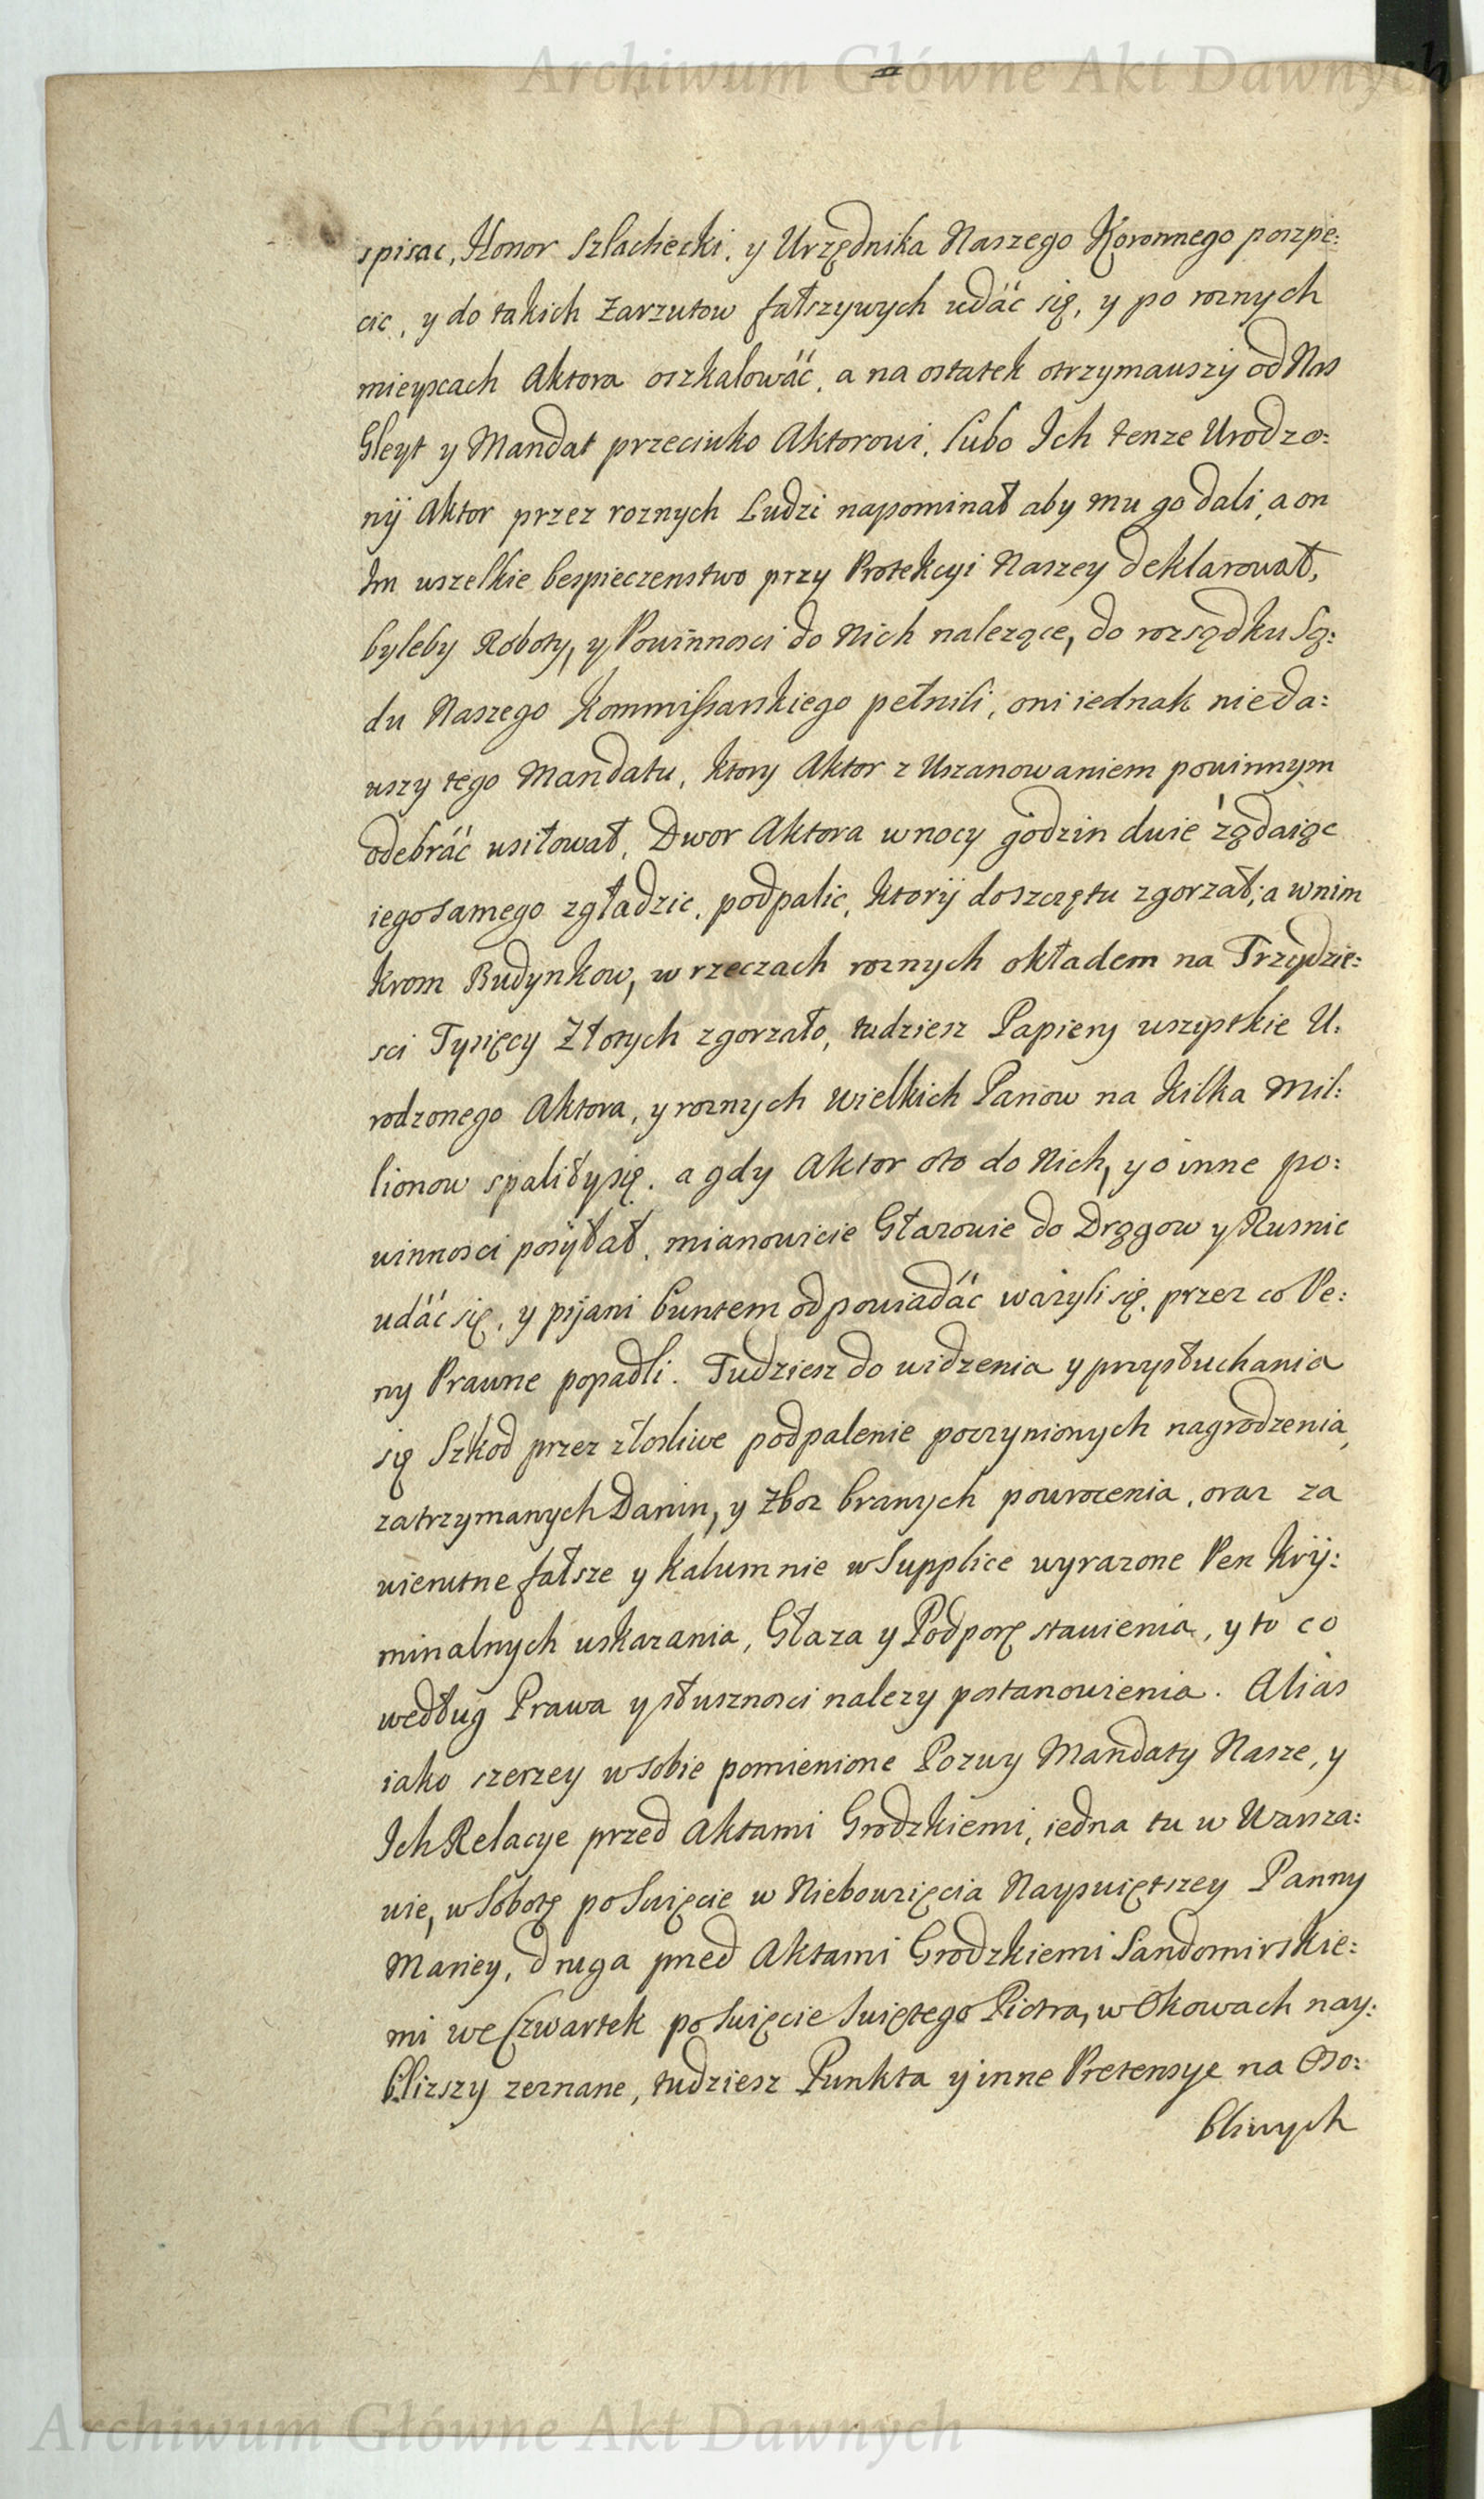 Archiwum Główne Akt Dawnych
spisac, Honor Szlachecki, y Urzędnika Naszego Koronnego poszpe:
cic, y do takich Zarzutow fałszywych udáć się, y po roznych
mieyscach Aktora oszkalowáć, a na ostatek otrzymawszÿ od Nas
Gleyt y Mandat przeciwko Aktorowi, lubo Ich tenze Urodzo:
nÿ Aktor przez roznych Ludzi napominał aby mu go dali, a on
Im wszelkie bespieczenstwo przy Protekcyi Naszey deklarował,
byleby Roboty, y Powinnosci do Nich nalezące, do rozsądku Są:
du Naszego Kommissarskiego pełnili, oni iednak nieda:
wszy tego Mandatu, ktory Aktor z Uszanowaniem powinnym
odebráć usiłował, Dwor Aktora w nocy godzin dwie żądaiąc
iego samego zgładzic, podpalic, ktorÿ doszczętu zgorzał, a w nim
krom Budynkow, w rzeczach roznych okładem na Trzydzie:
sci Tysięcy Złotych zgorzało, tudziesz Papiery wszystkie U:
rodzonego Aktora, y roznych wielkich Panow na kilka Mil:
lionow spaliły się. a gdy Aktor oto do Nich, y o inne po:
winnosci posÿłał, mianowicie Głazowie do Drągow y Rusnic
udáć się, y pijani buntem odpowiadáć ważyli się, przez co Pe:
ny Prawne popadli. Tudziesz do widzenia y przysłuchania
się Szkod przez złosliwe podpalenie poczynionych nagrodzenia,
zatrzymanych Danin, y Zboz branych powrocenia, oraz za
wierutne fałsze y kalumnie w Supplice wyrazone Pen krÿ:
minalnych wskazania, Głaza y Podporę stawienia, y to co
według Prawa y słusznosci nalezy postanowienia. Alias
iako szerzey w sobie pomienione Pozwy Mandaty Nasze, y
Ich Relacye przed Aktami Grodzkiemi, iedna tu w Warsza:
wie, w Sobotę po Swięcie w Niebowzięcia Nayswiętszey Panny
Mariey, druga przed Aktami Grodzkiemi Sandomirskie:
mi we Czwartek po Swięcie Swiętego Piotra, w Okowach nay:
blizszy zeznane, tudziesz Punkta y inne Pretensye na Oso:
bliwych
Archiwum Główne Akt Dawnych